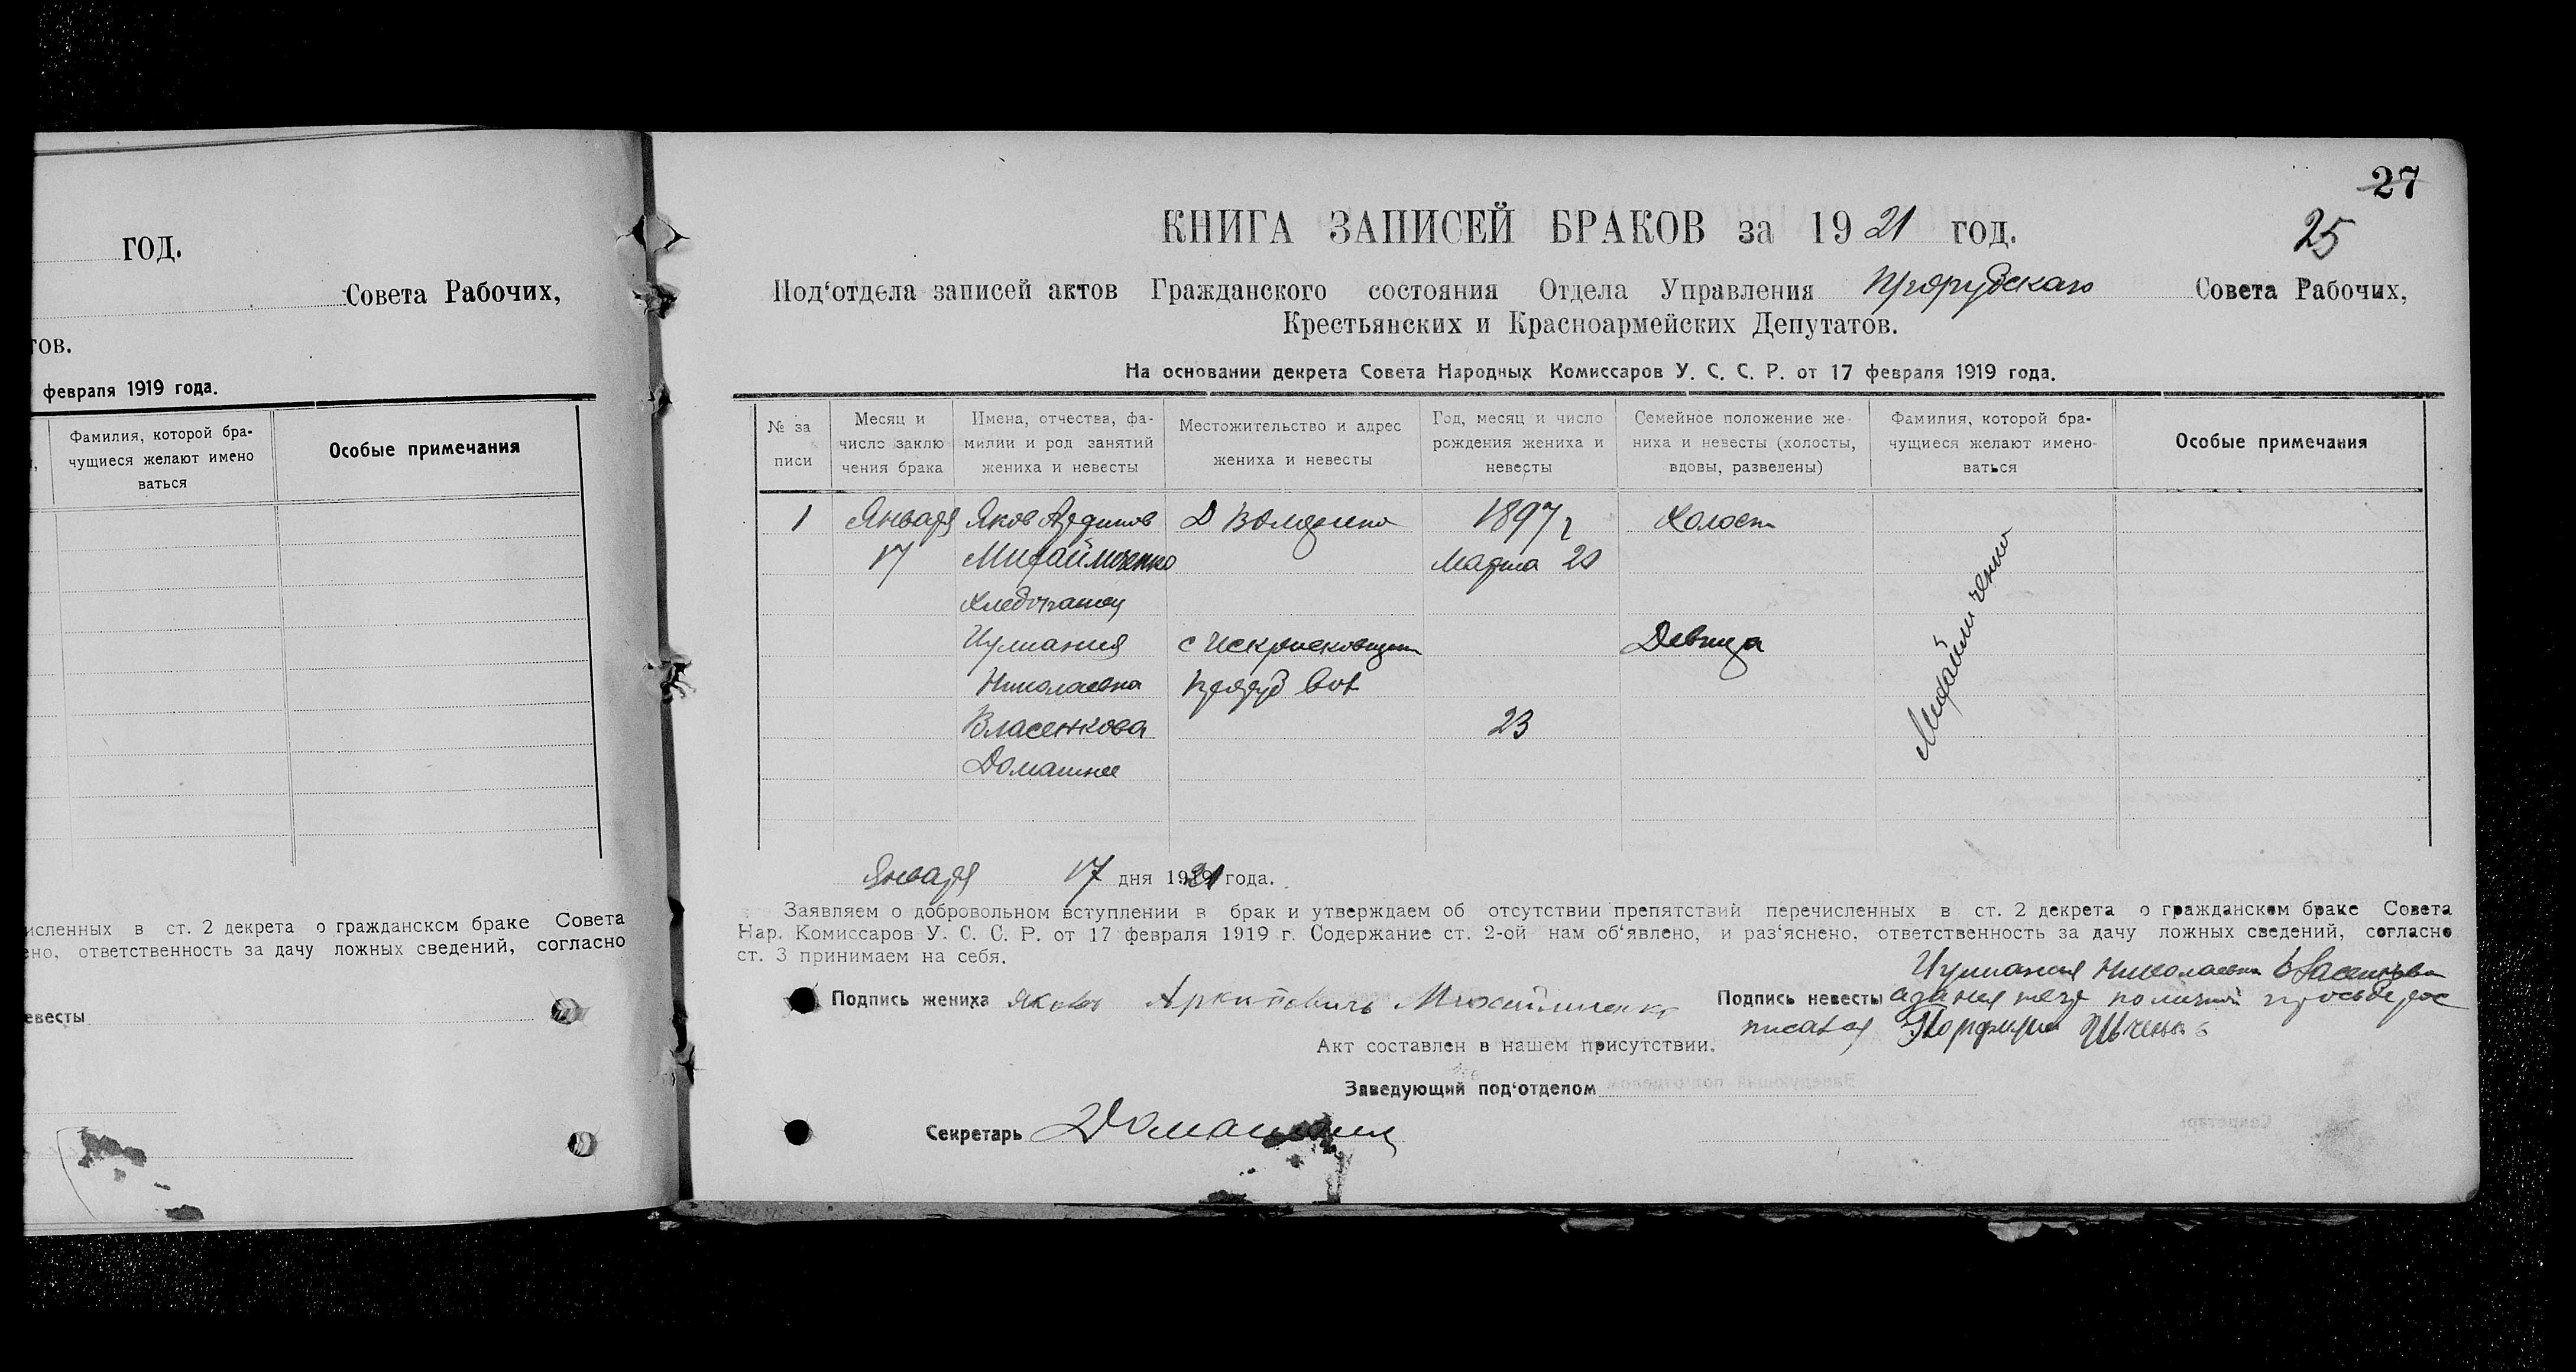 ГОД.
Совета Рабочих,
тов.
февраля 1919 года.
Фамилия, которой бра-
чущиеся желают имено
ваться
Особые примечания
исленных в ст. 2 декрета о гражданском браке Совета
ено, ответственность за дачу ложных сведений, согласно
евесты
27
25
КНИГА ЗАПИСЕЙ БРАКОВ за 1921 год.
Под‘отдела записей актов Гражданского состояния Отдела Управления Совета Рабочих,
Крестьянских и Красноармейских Депутатов.
На основании декрета Совета Народных Комиссаров У. С. С. Р. от 17 февраля 1919 года.
№ за
писи
Месяц и
число заклю
чения брака
Имена, отчества, фа-
милии и род занятий
жениха и невесты
Местожительство и адрес
жениха и невесты
Год, месяц и число
рождения жениха и
невесты
Семейное положение же-
ниха и невесты (холосты,
вдовы, разведены)
Фамилия, которой бра-
чущиеся желают имено-
ваться
Особые примечания
1 Января Яков Д 1897 г Холост
17 Михайличенко Марта 20
Иулиания с Девица
Николаевна
Власенкова 23
Домашнее
Михайличенко
Января 17 дня 1921 года.
Заявляем о добровольном вступлении в брак и утверждаем об отсутствии препятствий перечисленных в ст. 2 декрета о гражданском браке Совета
Нар. Комиссаров У. С. С. Р. от 17 февраля 1919 г. Содержание ст. 2-ой нам об‘явлено, и раз‘яснено, ответственность за дачу ложных сведений, согласно
ст. 3 принимаем на себя.
Иулиания Николаевна Власенкова
Подпись жениха Яковъ Михайличенко Подпись невесты а за нея по личной просьбе рос
писался Порфирий
Акт составлен в нашем присутствии.
Заведующий под‘отделом
Секретарь